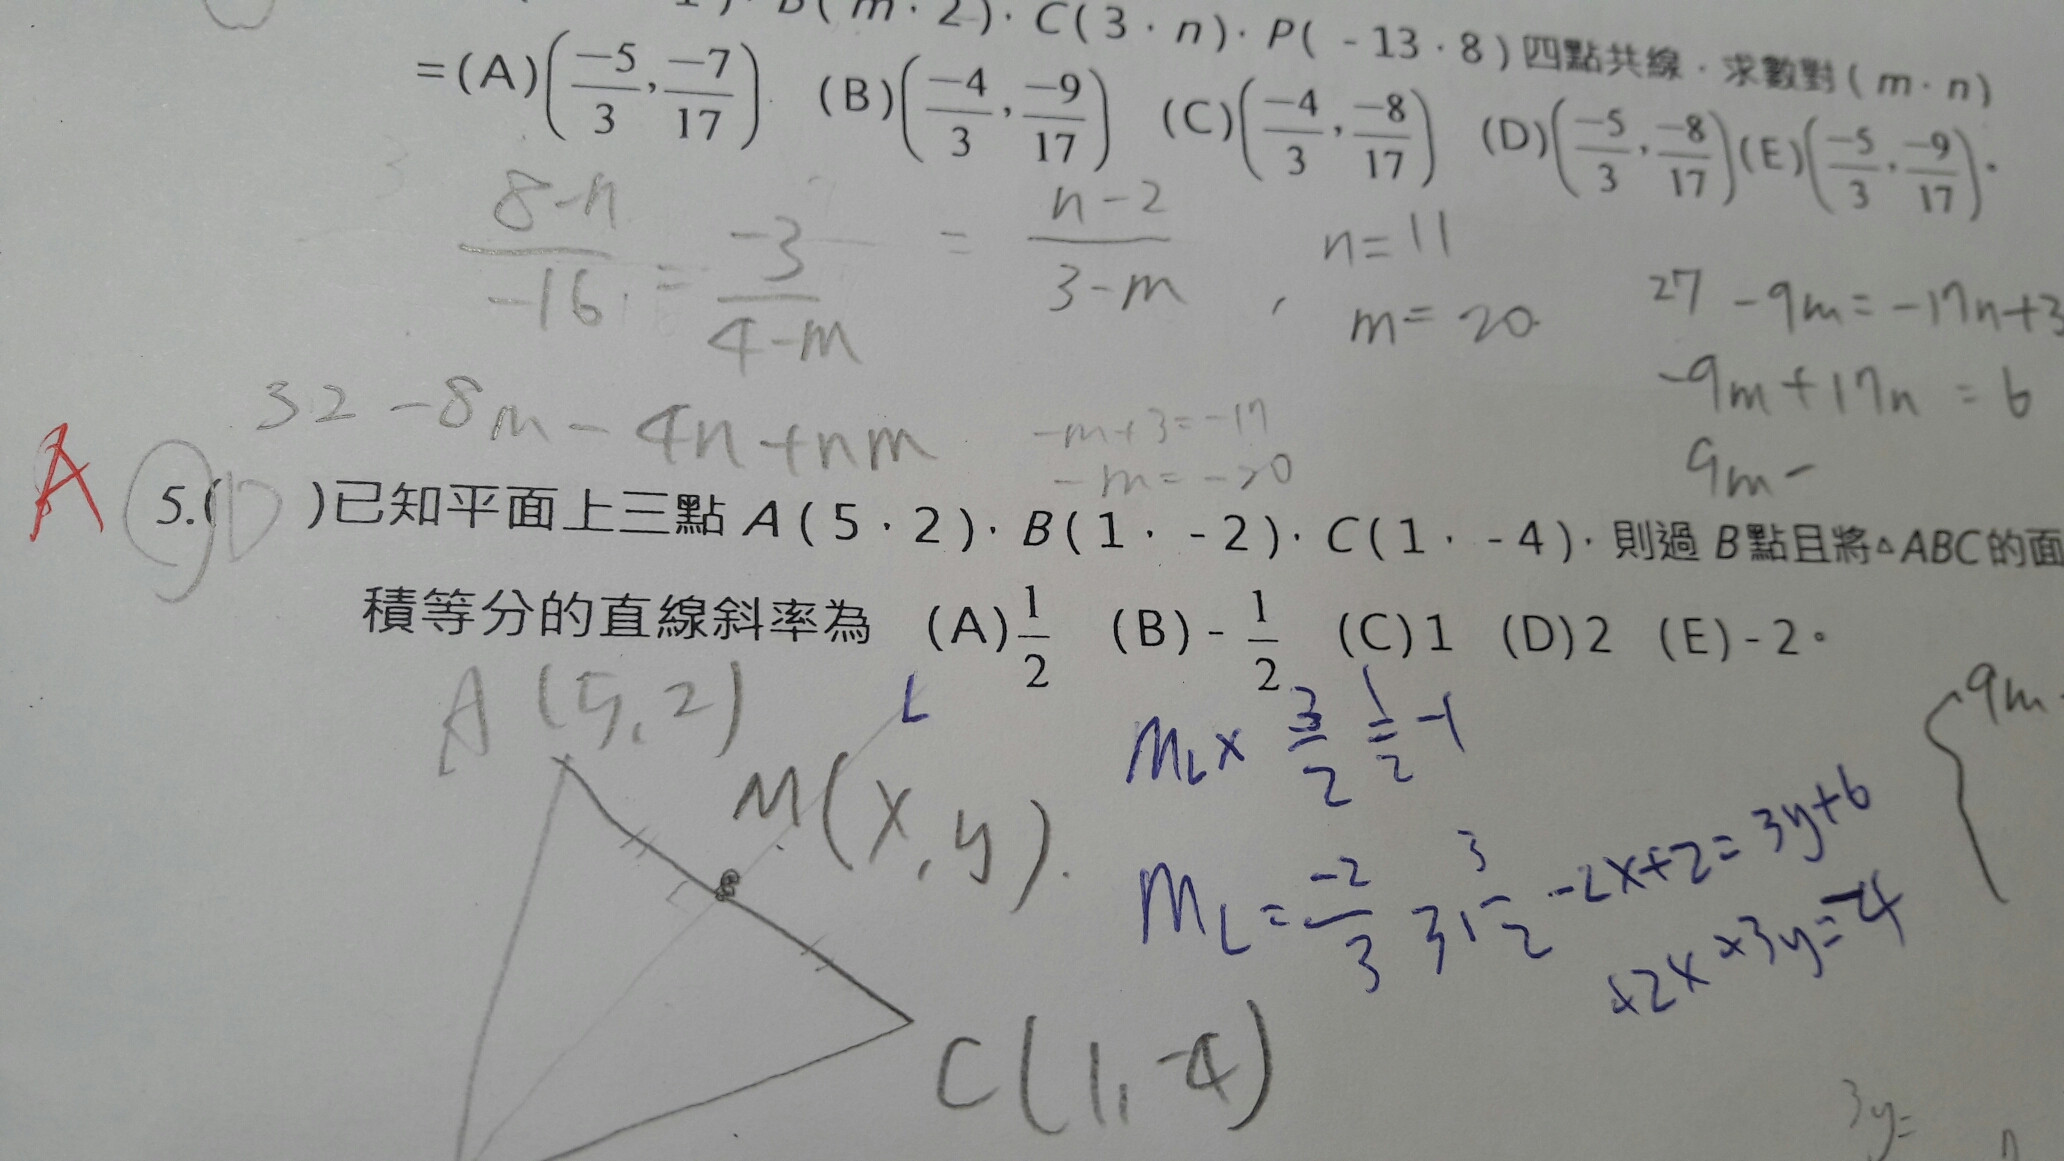 B(m,2)、C(3,n)、P(-13,8)四點共線,求數對(m,n)
=(A)(-5/3,-7/17) (B)(-4/3,-9/17) (C)(-4/3,-8/17) (D)(-5/3,-8/17)(E)(-5/3,-9/17)。
8-n/-16 = -3/4-m = n-2/3-m , n=11
m=20
27-9m=-17n+3
-9m+17n=6
9m-
32-8m-4n+nm
-m+3=-17
-m=-20
A
5.(D)已知平面上三點A(5,2)、B(1,-2)、C(1,-4),則過B點且將△ABC的面
積等分的直線斜率為 (A)1/2 (B)-1/2 (C)1 (D)2 (E)-2。
A(5,2)
L
M(x,y).
mL×3/2=-1
mL=-2/3
-2x+2=3y+6
+2x+3y=-4
9m
C(1,-4)
3y=